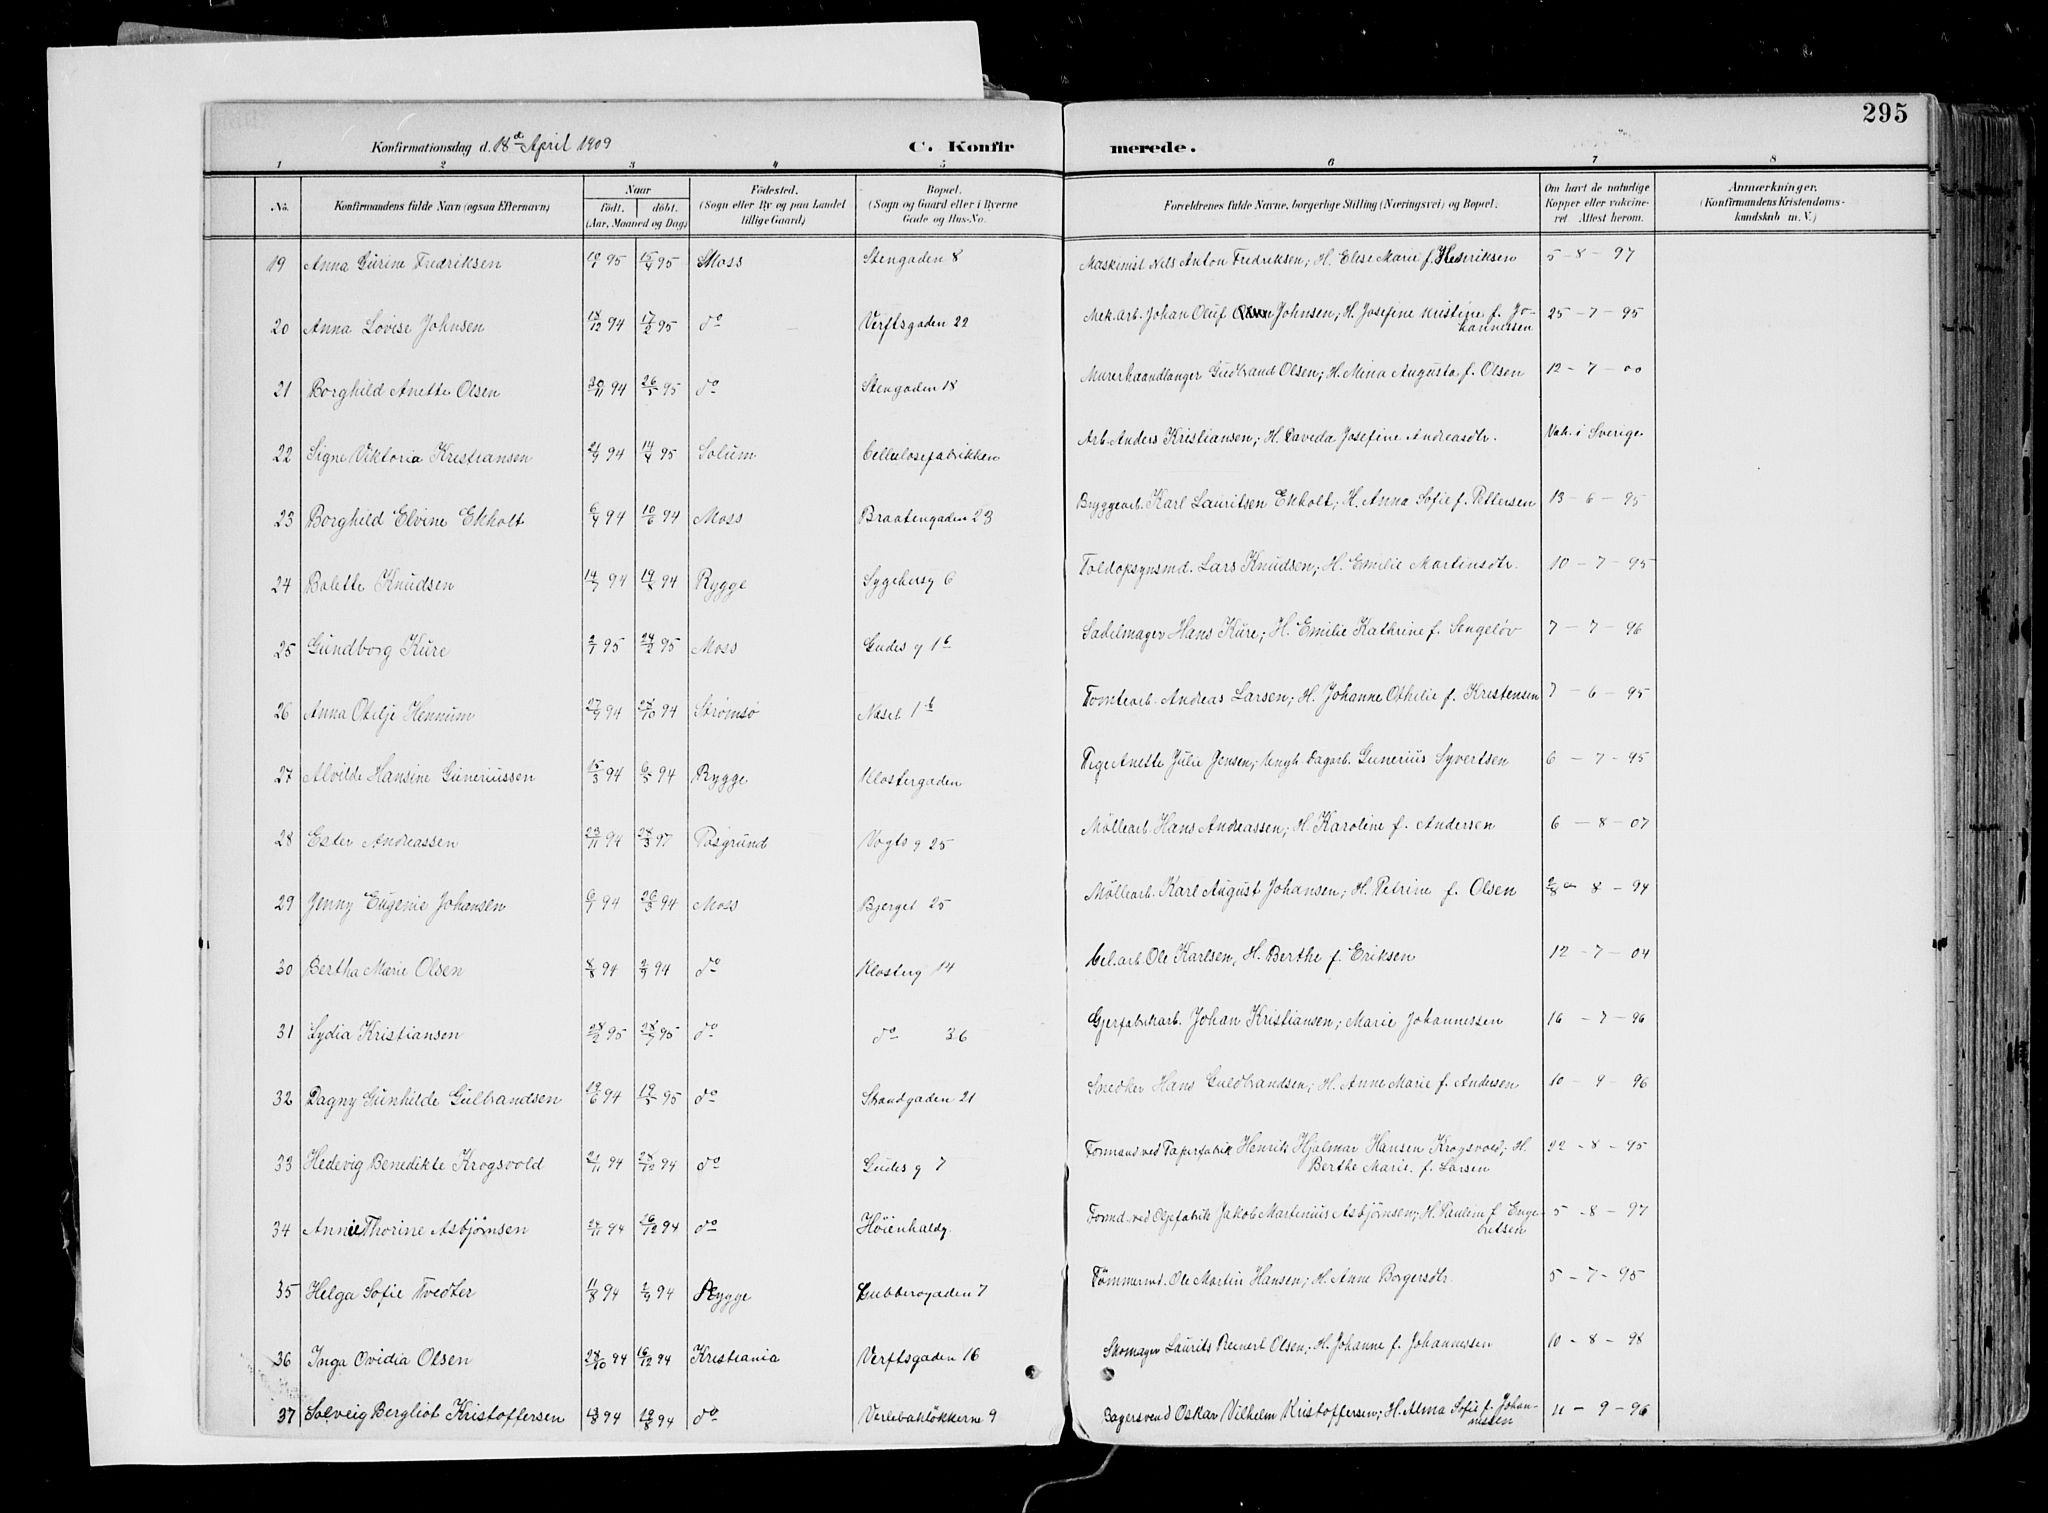 295
Konfirmationsdag d. 18de April 1909 C. Konfirmerede.
1 2 3 4 5 6 7 8
No. Konfirmandens fulde Navn (ogsaa Efternavn) Naar født. døbt. (Aar, Maaned og Dag) Fødested. (Sogn eller By og paa Landet tillige Gaard) Bopæl. (Sogn og Gaard eller i Byerne Gade og Hus-No. Forældrenes fulde Navne, borgerlige Stilling (Næringsvei) og Bopæl. Om havt de naturlige Kopper eller vaccineret. Attest herom. Anmærkninger. (Konfirmandens Kristendomskundskab m. V.)
19 Anna Gurine Fredriksen 95 15/4 95 Moss Stengaden 8 Maskinist Nils Anton Fredriksen; H. Elise Marie f. Henriksen 5-8-97
20 Anna Lovise Johnsen 18/12 94 17/2 95 do Verftsgaden 22 Mek. arb. Johan Oluf Johnsen; H. Josefine Kristine f. Johannessen 25-7-95
21 Borghild Anette Olsen 30/11 94 26/5 95 do Stengaden 18 Murerhaandlanger Gudbrand Olsen; H. Mina Augusta f. Olsen 12-7-00
22 Signe Viktoria Kristiansen 21/9 94 14/4 95 Solum Cellulosefabrikken Arb. Anders Kristiansen; H. Daveda Josefine Andreasdtr. Vak. i Sverige
23 Borghild Elvine Ekholt 6/4 94 10/6 94 Moss Braatengaden 23 Bryggearb. Karl Lauritsen Ekholt; H. Anna Sofie f. Pettersen 13-6-95
24 Bolette Knudsen 94 94 Rygge Sygehusg 6 Toldopsynsmd. Lars Knudsen; H. Emilie Martinsdtr. 10-7-95
25 Gundborg Kure 2/1 95 24/2 95 Moss Gudes g 1b Sadelmager Hans Kure; H. Emilie Kathrine f. Sengeløv 7-7-96
26 Anna Otilje Hennum 27/9 94 28/10 94 Strømsø Neset 1b Tomtearb. Andreas Larsen; H. Johanne Othilie f. Kristensen 7-6-95
27 Alvilde Hansine Guneriussen 15/3 94 6/5 94 Rygge Klostergaden Pige Anette Julie Jensen; Ungk. Dagarb. Gunerius Syvertsen 6-7-95
28 Ester Andreassen 23/11 94 28/3 97 Posgrund Vogts g 25 Møllearb. Hans Andreassen; H. Karoline f. Andersen 6-8-07
29 Jenny Eugenie Johansen 6/1 94 26/3 94 Moss Bjerget 25 Møllearb. Karl August Johansen; H. Petrine f. Olsen 8-94
30 Bertha Marie Olsen 8/8 94 2/9 94 do Klosterg 14 Cel. arb. Ole Karlsen, H. Berthe f. Eriksen 12-7-04
31 Lydia Kristiansen 28/2 95 28/7 95 do do 36 Gjærfabrikarb. Johan Kristiansen; Marie Johannessen 16-7-96
32 Dagny Gunhilde Gulbrandsen 19/6 94 19/5 95 do Strandgaden 21 Snedker Hans Guldbrandsen; H. Anne Marie f. Andersen 10-9-96
33 Hedevig Benedikte Krogsvold 21/11 94 28/12 94 do Gudes g 7 Formand ved Papirfabrik Henrik Hjalmar Hansen Krogsvold; H. Berthe Marie f. Larsen 22-8-95
34 Annie Thorine Asbjørnsen 94 26/12 94 do Høienhaldg. Formd. ved Oljefabrik Jakob Martinius Asbjørnsen; H. Pauline f. Engebretsen 5-8-97
35 Helga Sofie Tvedter 11/8 94 2/9 94 Rygge Gubberogaden 7 Tømmermd. Ole Martin Hansen; H. Anne Borgersdtr. 5-7-95
36 Inga Ovidia Olsen 28/10 94 16/12 94 Kristiania Verftsgaden 16 Skomager Laurits Reinert Olsen; H. Johanne f. Johannessen 10-8-98
37 Solveig Bergliot Kristoffersen 94 19/8 94 do Varlebakløkkerne 9 Bagersvend Oskar Vilhelm Kristoffersen; H. Alma Sofie f. Johannessen 11-9-96